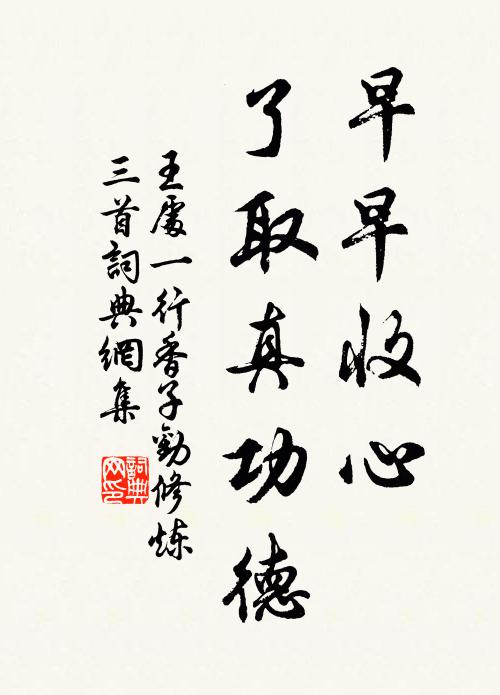 早早收心
了取真功德
王處一行香子勸修炼
三首詞典網集
詞典
网印